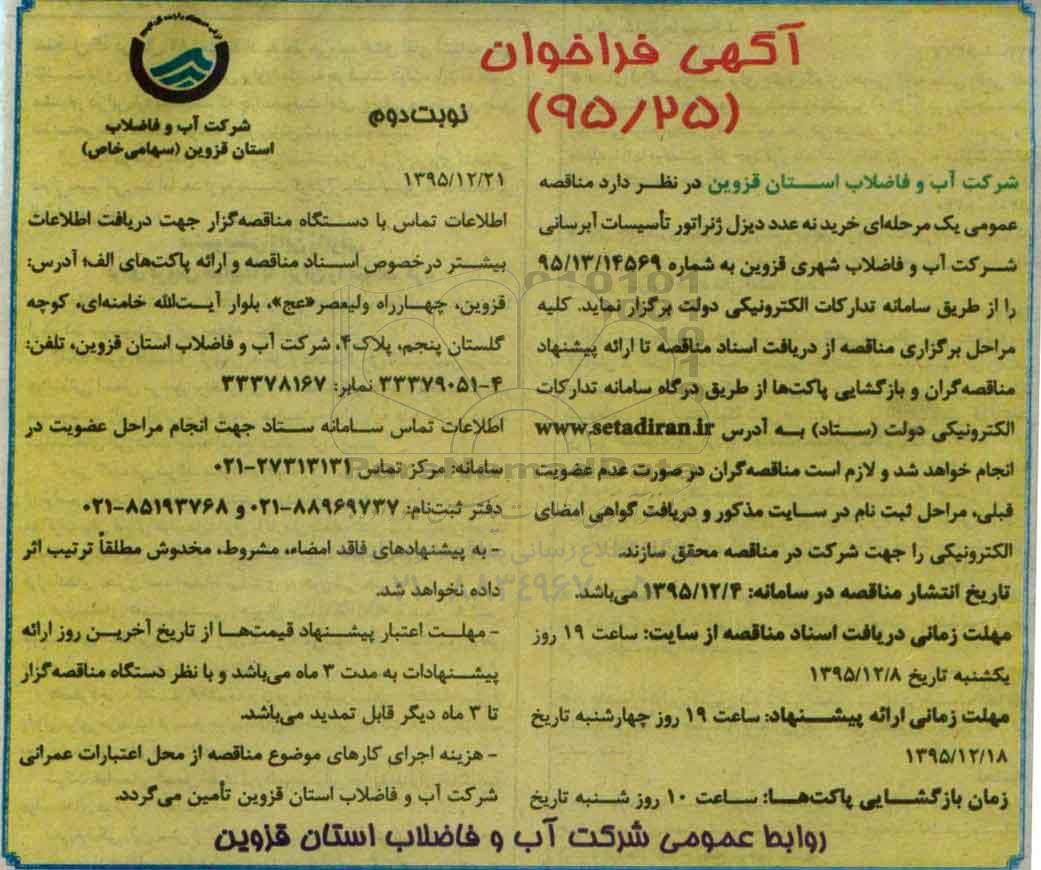 آگهی فراخوان
(۹۵/۲۵)
نوبت دوم
شرکت آب و فاضلاب
استان قزوین (سهامی خاص)
شرکت آب و فاضلاب اســتان قزوین در نظــر دارد مناقصه
عمومی یک مرحله‌ای خرید نه عدد دیزل ژنراتور تأسیسات آبرسانی
شــرکت آب و فاضلاب شهری قزوین به شماره ۹۵/۱۳/۱۴۵۶۹
را از طریق سامانه تدارکات الکترونیکی دولت برگزار نماید. کلیه
مراحل برگزاری مناقصه از دریافت اسناد مناقصه تا ارائه پیشنهاد
مناقصه‌گران و بازگشایی پاکت‌ها از طریق درگاه سامانه تدارکات
الکترونیکی دولت (ســتاد) بــه آدرس www.setadiran.ir
انجام خواهد شد و لازم است مناقصه‌گران در صورت عدم عضویت
قبلی، مراحل ثبت نام در ســایت مذکور و دریافت گواهی امضای
الکترونیکی را جهت شرکت در مناقصه محقق سازند.
تاریخ انتشار مناقصه در سامانه: ۱۳۹۵/۱۲/۴ می‌باشد.
مهلت زمانی دریافت اسناد مناقصه از سایت: ساعت ۱۹ روز
یکشنبه تاریخ ۱۳۹۵/۱۲/۸
مهلت زمانی ارائه پیشــنهاد: ساعت ۱۹ روز چهارشنبه تاریخ
۱۳۹۵/۱۲/۱۸
زمان بازگشــایی پاکت‌هــا: ســاعت ۱۰ روز شــنبه تاریخ
۱۳۹۵/۱۲/۲۱
اطلاعات تماس با دســتگاه مناقصه‌گزار جهت دریافت اطلاعات
بیشــتر درخصوص اســناد مناقصه و ارائه پاکت‌های الف؛ آدرس:
قزوین، چهــارراه ولیعصر«عج»، بلوار آیــت‌الله خامنه‌ای، کوچه
گلستان پنجم، پلاک۴، شرکت آب و فاضلاب استان قزوین، تلفن:
۳۳۳۷۹۰۵۱-۴ نمابر: ۳۳۳۷۸۱۶۷
اطلاعات تماس ســامانه ســتاد جهت انجام مراحل عضویت در
سامانه: مرکز تماس ۲۷۳۱۳۱۳۱-۰۲۱
دفتر ثبت‌نام: ۸۸۹۶۹۷۳۷-۰۲۱ و ۸۵۱۹۳۷۶۸-۰۲۱
- به پیشنهادهای فاقد امضاء، مشروط، مخدوش مطلقاً ترتیب اثر
داده نخواهد شد.
- مهلــت اعتبار پیشــنهاد قیمت‌هــا از تاریخ آخریــن روز ارائه
پیشــنهادات به مدت ۳ ماه می‌باشد و با نظر دستگاه مناقصه‌گزار
تا ۳ ماه دیگر قابل تمدید می‌باشد.
- هزینه اجرای کارهای موضوع مناقصه از محل اعتبارات عمرانی
شرکت آب و فاضلاب استان قزوین تأمین می‌گردد.
روابط عمومی شرکت آب و فاضلاب استان قزوین